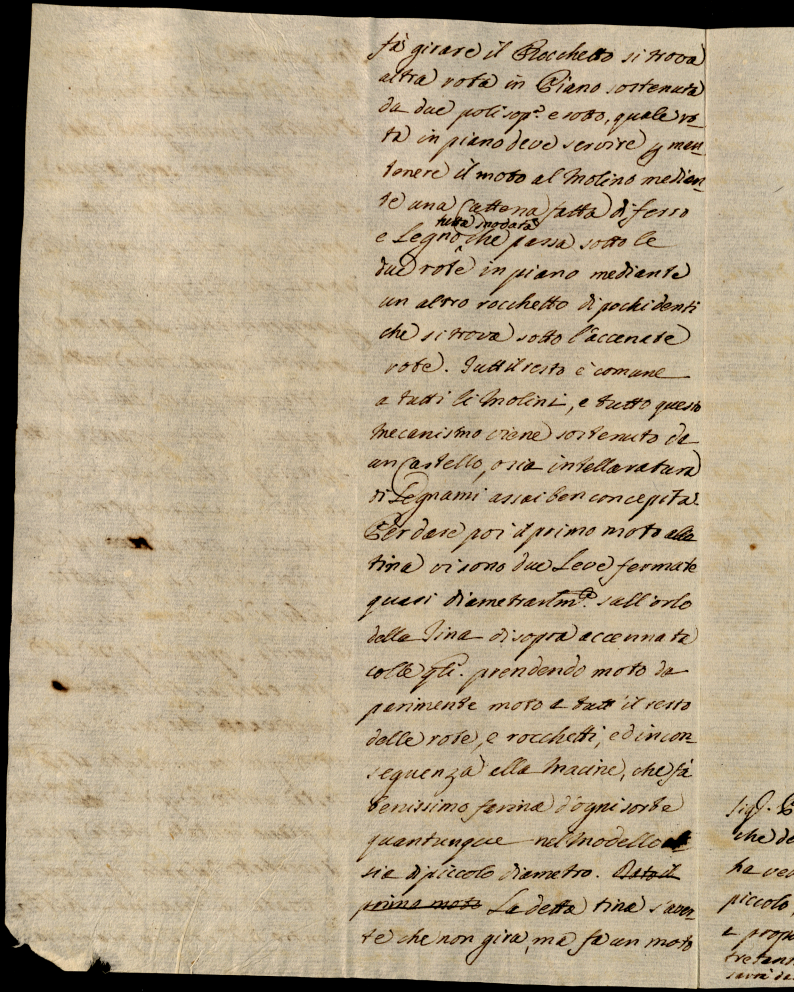 fà girare il Rocchetto si trova
altra rota in Piano sostenuta
da due poli sop.ª e sotto, quale ro-
ta in piano deve servire p man-
tenere il moto al Molino median-
te una Cattena fatta di ferro
tutta snodata
e Legno che passa sotto le
due rote in piano mediante
un altro rocchetto di pochi denti
che si trova sotto l'accenate
rote. Tutt il resto è comune
a tutti li Molini, e tutto questo
Mecanismo viene sostenuto da
un Castello, osia intellaratura
di Legnami assai ben concepita.
Per dare poi il primo moto alla
tina vi sono due Leve fermate
quasi diametralm.e sull'orlo
della Tina di sopra accennata
colle qli. prendendo moto da
parimente moto a tutt' il resto
delle rote, e rocchetti, ed in con-
seguenza alla Macine, che fà
benissimo farina d'ogni sorte
quantunque nel Modello
sia di piccolo diametro. Dato il
primo moto La detta tina s'aver-
te che non gira, ma fa un moto
Sig.
che de
ha ved
piccolo,
a propo
tretan